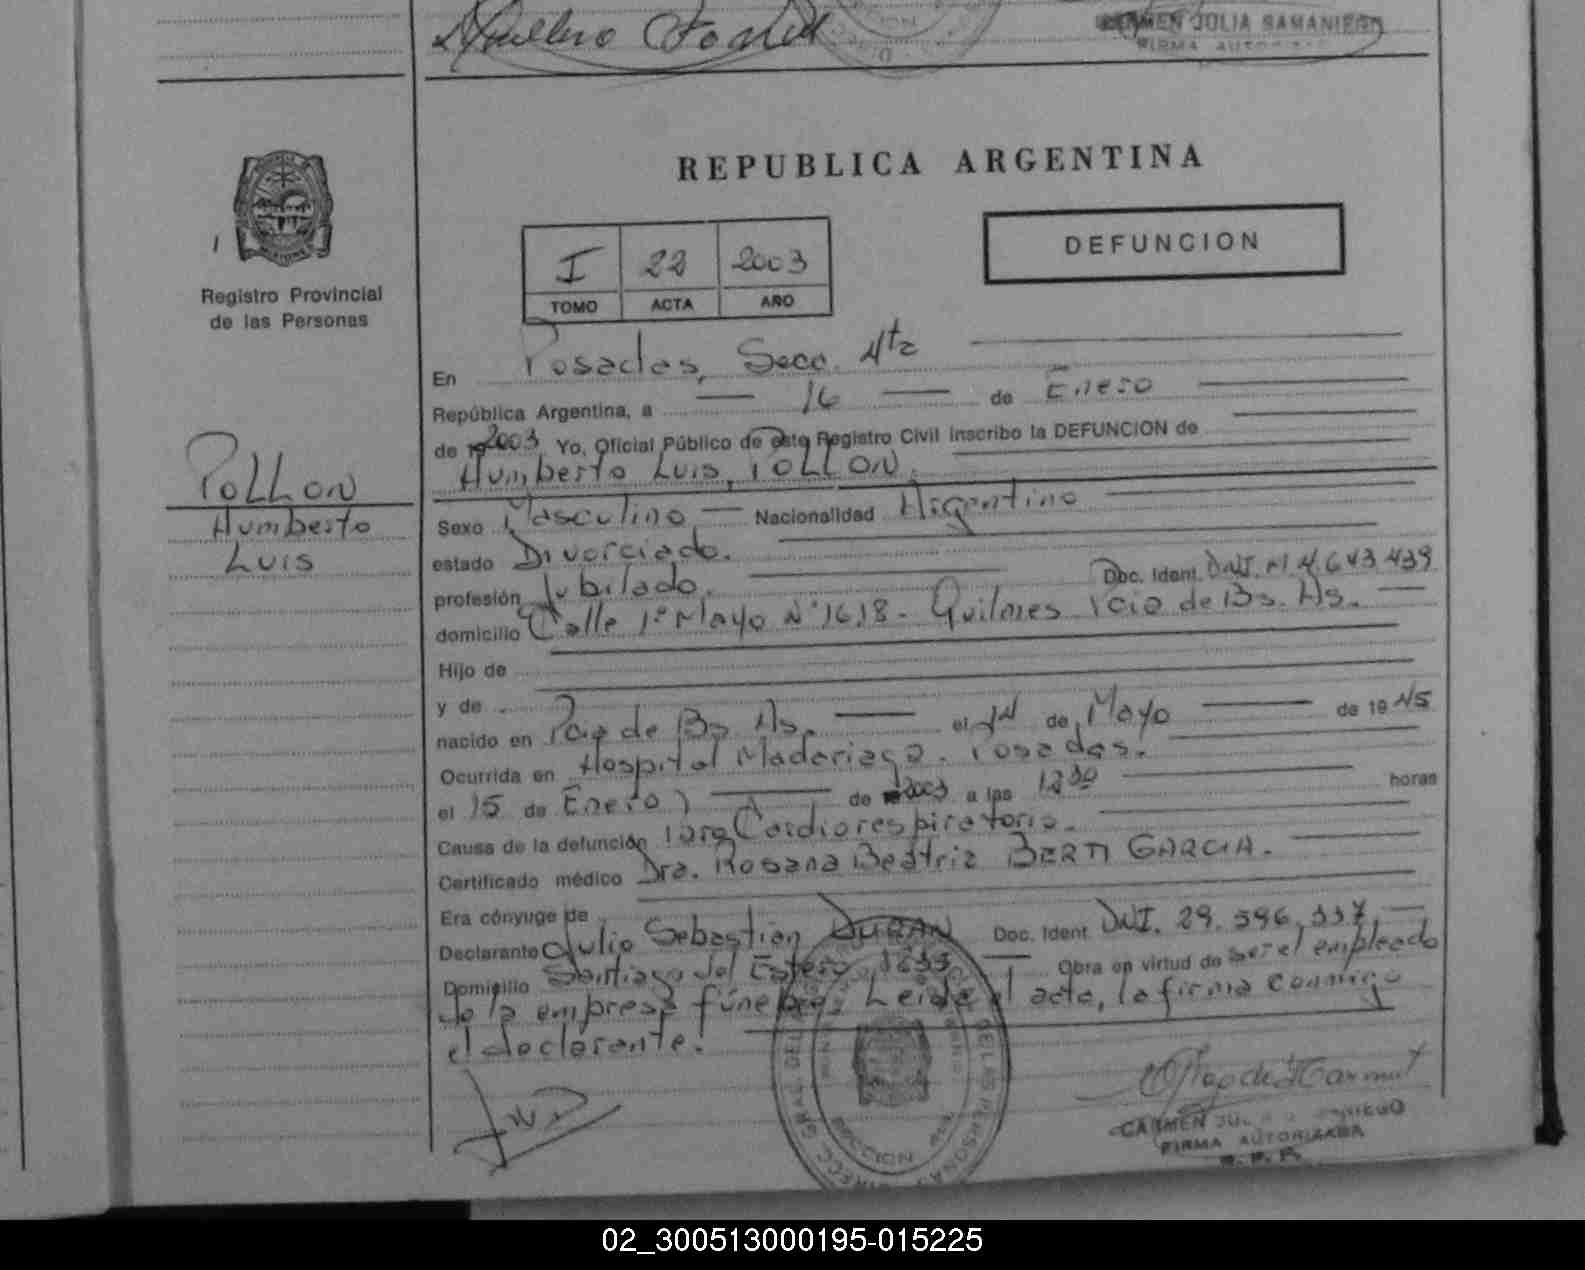 CARMEN JULIA SAMANIEGO
FIRMA AUTORIZADA
REPUBLICA ARGENTINA
DEFUNCION
I 22 2003
TOMO ACTA AÑO
Registro Provincial
de las Personas
POLLON
Humberto
Luis
En Posadas, Secc. 4ta
República Argentina, a 16 de Enero
de 19 2003 Yo, Oficial Público de este Registro Civil inscribo la DEFUNCION de
Humberto Luis, POLLON.
Sexo Masculino Nacionalidad Argentino
estado Divorciado.
profesión Jubilado. Doc. Ident. DNI. M 4.643.439
domicilio Calle 1º Mayo Nº 1618 - Quilmes Pcia de Bs. As.
Hijo de
y de
nacido en Pcia de Bs As. el de Mayo de 19 45
Ocurrida en Hospital Madariaga. Posadas.
el 15 de Enero de 2003 a las 12 30 horas
Causa de la defunción Paro Cardiorespiratorio.
Certificado médico Dra. Rosana Beatriz BERTI GARCIA.
Era cónyuge de
Declarante Julio Sebastián DURAN Doc. Ident. DNI. 29.596.337
Domicilio Santiago del Estero 3633 Obra en virtud de ser el empleado
de la empresa fúnebre, Leida el acta, la firma conmigo
el declarante.
DIRECC. GRAL. DEL DE LAS PERSONAS
CARMEN JULIA SAMANIEGO
FIRMA AUTORIZADA
R. P. P.
02_300513000195-015225